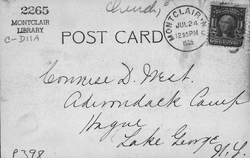 2265
MONTCLAIR
LIBRARY
C-D11A
Church
POST CARD
MONTCLAIR, N.
JUL 24
12 30 PM
D. West.
Adirondack Camp
Hague
Lake George
N.Y.
P398